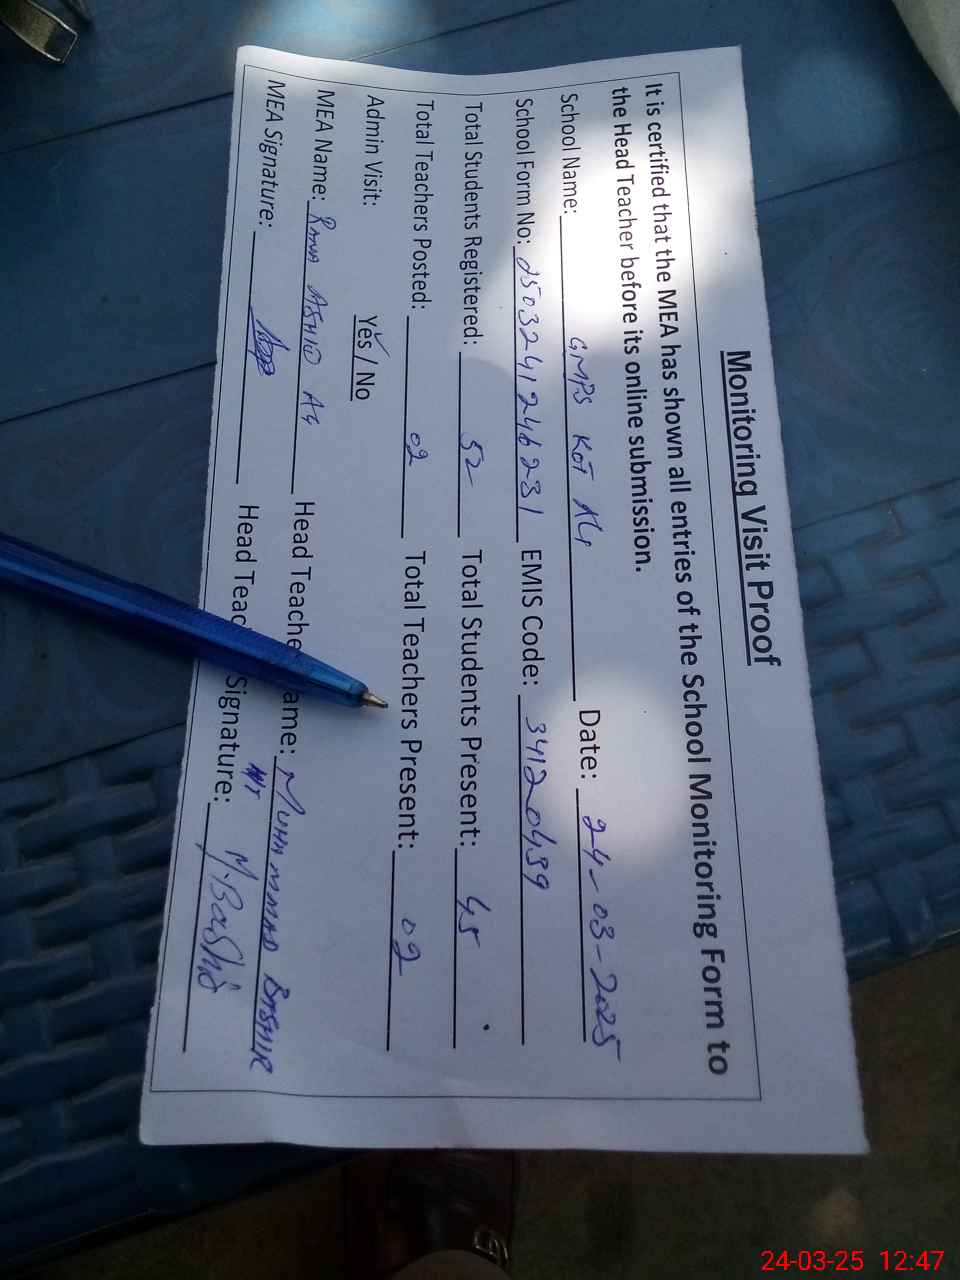 Monitoring Visit Proof
It is certified that the MEA has shown all entries of the School Monitoring Form to
the Head Teacher before its online submission.
School Name: GMPS KOT Date: 24-03-2025
School Form No: 2503241246231 EMIS Code: 34120439
Total Students Registered: 52 Total Students Present: 45
Total Teachers Posted: 02 Total Teachers Present: 02
Admin Visit: Yes / No
MEA Name: Head Teache ame: MUHAMMAD BASHIR
HT
MEA Signature: Head Teac Signature: M.Bashir
24-03-25 12:47